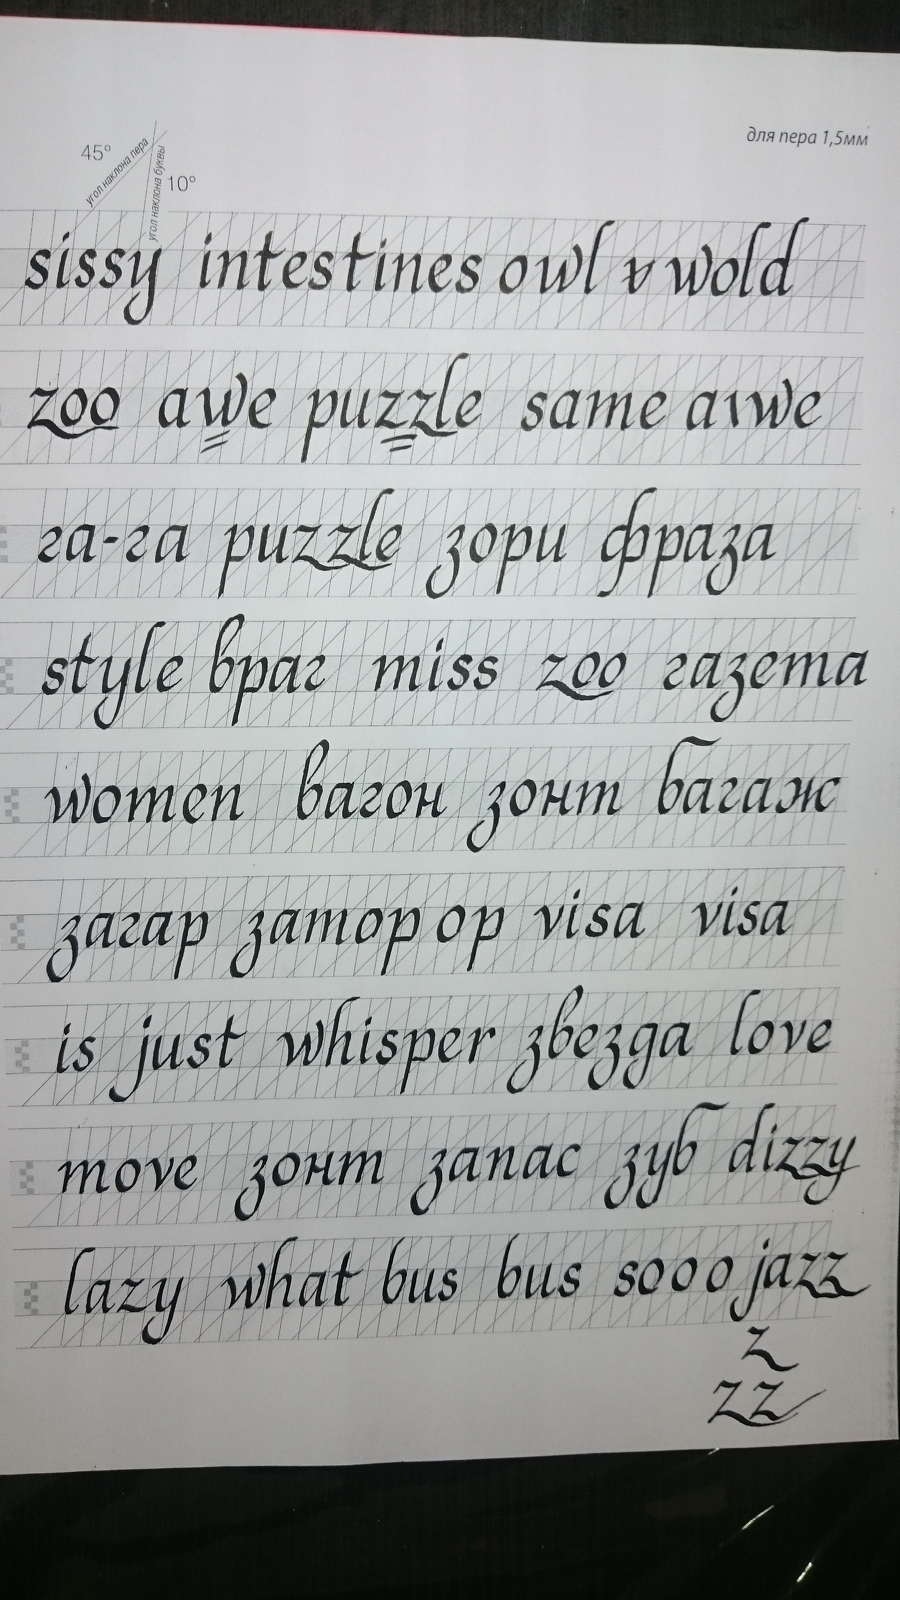 для пера 1,5мм
45°
угол наклона пера
угол наклона буквы
10°
sissy intestines owl v wold
zoo awe puzzle same awe
га-га puzzle зори фраза
style враг miss zoo газета
women вагон зонт багаж
загар затор ор visa visa
is just whisper звезда love
move зонт запас зуб dizzy
lazy what bus bus sooo jazz
z
zz